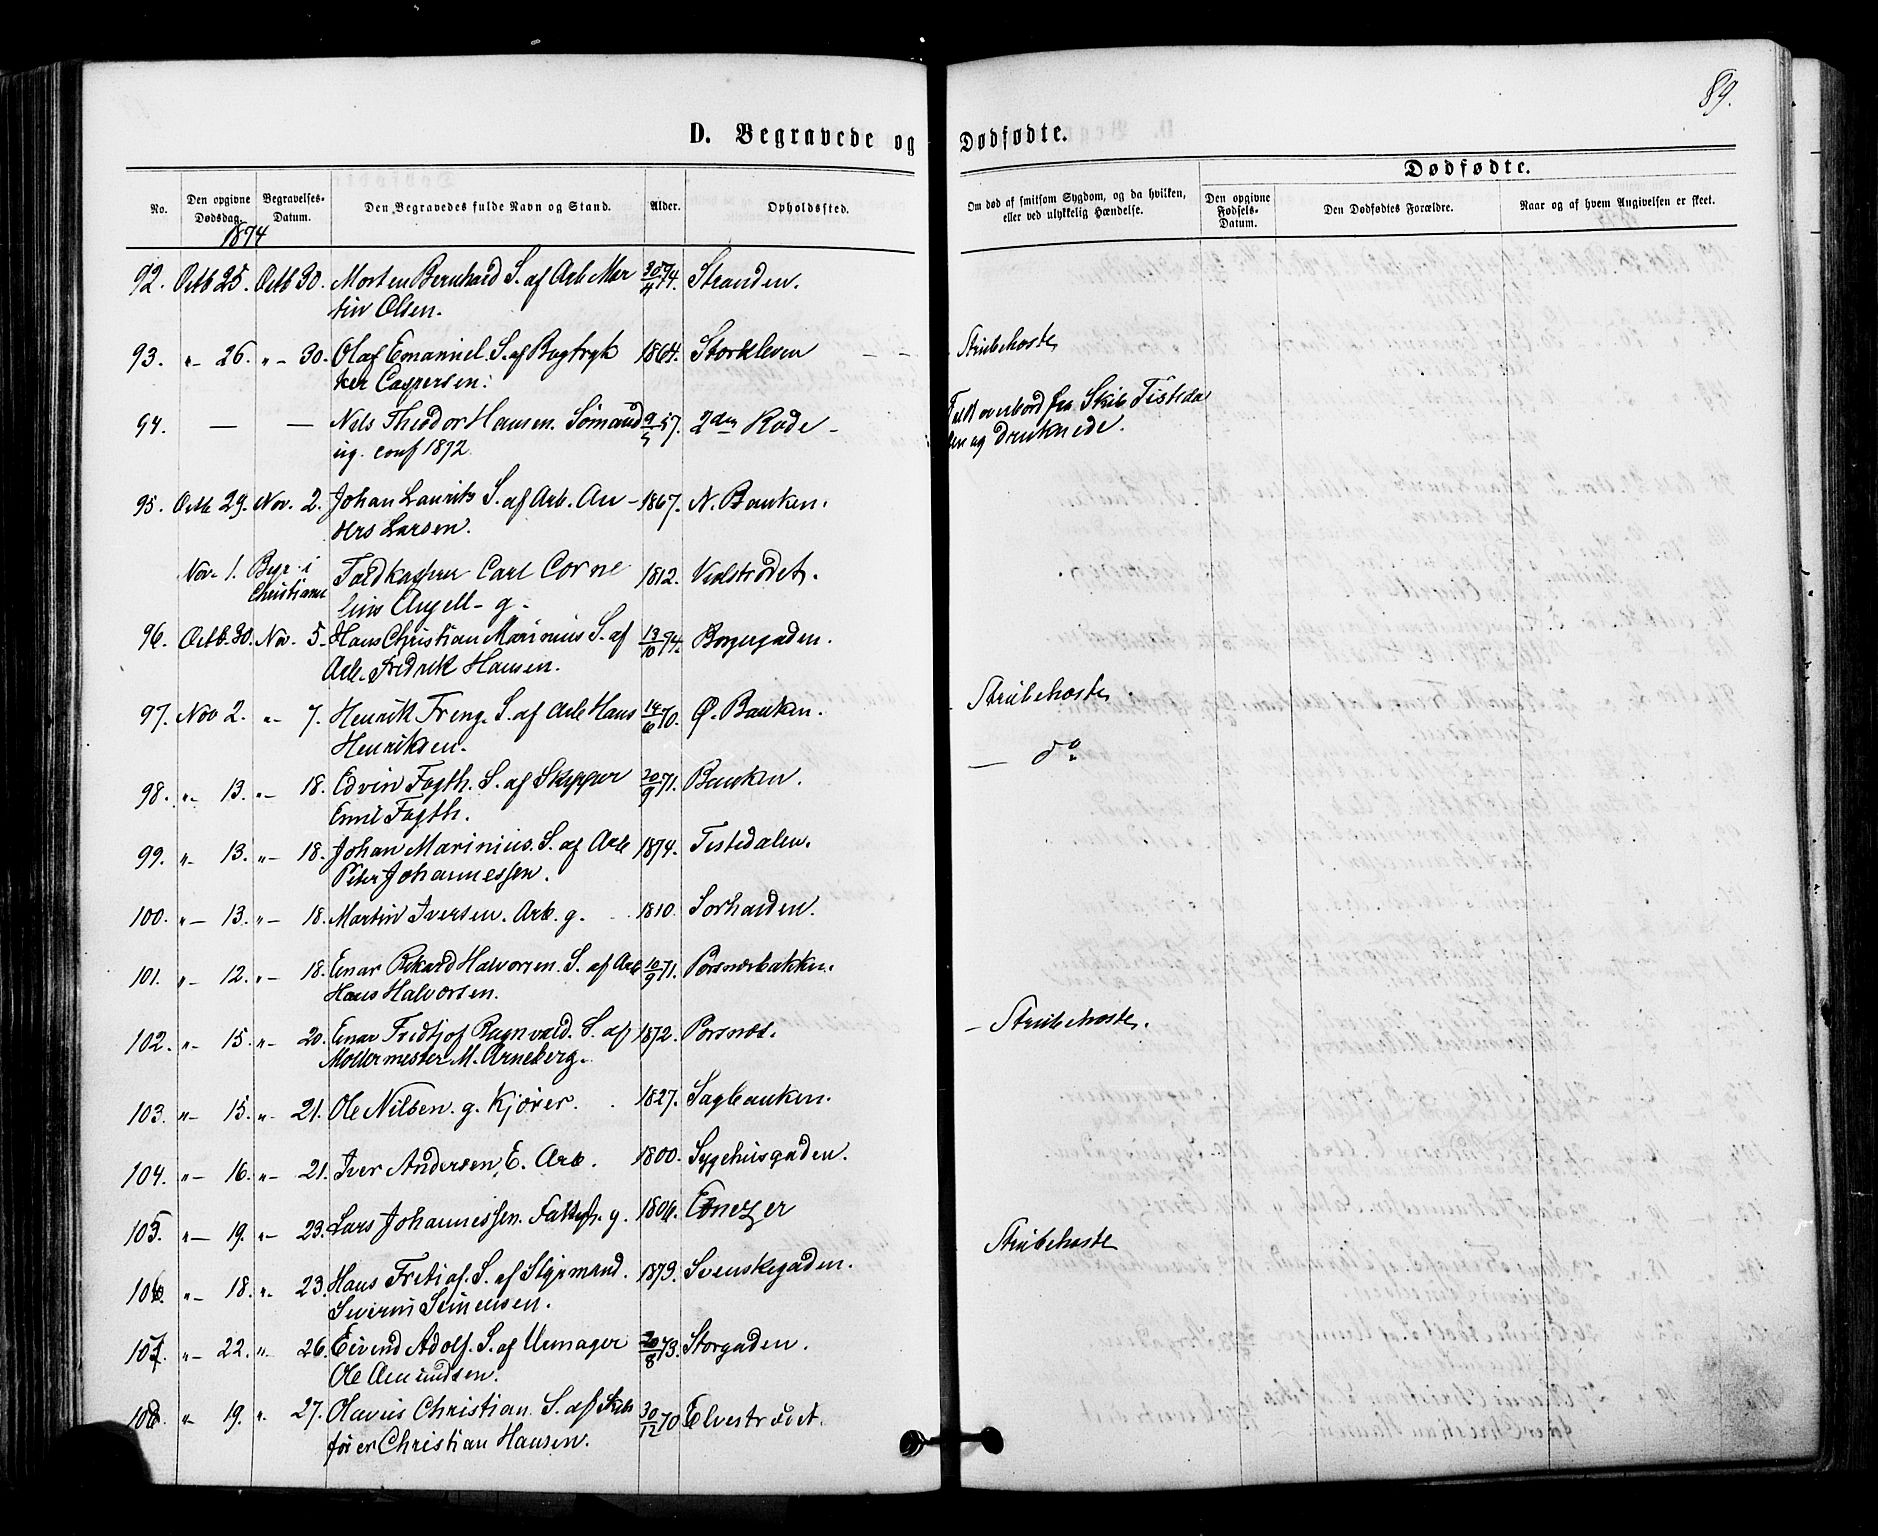 89.
D. Begravede og Dødfødte.
Dødfødte.
No.
Den opgivne Dødsdag.
Begravelses-Datum.
Den Begravedes fulde Navn og Stand.
Alder.
Opholdssted.
Om død af smitsom Sygdom, og da hvilken, eller ved ulykkelig Hændelse.
Den opgivne Fødsels-Datum.
Den Dødfødtes Forældre.
Naar og af hvem Angivelsen er skeet.
1874
92. Octb 25. Octb 30. Morten Bernhard S. af Arb Mar 30/4 74. Stranden.
tin Olsen.
93. " - 26. " - 30. Olaf Emanuel. S. af Bogtryk 1864. Storkleven - - Strubehoste
ker Caspersen.
94. — — Nils Theodor Hansen. Sømand 9/5 57. 2den Rode - Faldt overbord fra Skib Tisteda
ug. conf 1872. len og druknede.
95. Octb 29. Nov. 2. Johan Lauritz S. af Arb. An- 1867. N. Banken.
ders Larsen.
Nov. 1. Begr. i Toldkasserer Carl Corne 1812. Vedstrødet.
Christiania lius Angell - g.
96. Octb. 30. Nov. 5. Hans Christian Marinius S. af 13/10 74. Borgergaden.
Arb. Fredrik Hansen.
97. Nov 2. " - 7. Henrik Freng. S. af Arb Hans 14/6 70. Ø. Banken. Strubehoste.
Henriksen.
98. " - 13. " - 18. Edvin Fagth. S. af Skipper 20/9 71. Banken. — do
Emil Fagth.
99. " - 13. " - 18. Johan Marinius. S. af Arb 1874. Tistedalen.
Peter Johannessen.
100. " - 13. " - 18. Martin Iversen. Arb. g. 1810. Sorhauden.
101. " - 12. " - 18. Einar Rikard Halvorsen. S. af Arb 10/9 71. Porsnæsbakken.
Hans Halvorsen.
102. " - 15. " - 20. Einar Fridtjof Ragnvald. S. af 1872. Porsnæs. - Strubehoste.
Møllermester M. Arneberg.
103. " - 15. " - 21. Ole Nilsen. g. Kjører. 1827. Sagbanken.
104. " - 16. " - 21. Iver Andersen, E. Arb. 1800. Sygehusgaden.
105. " - 19. " - 23. Lars Johannessen. g. 1806. Ebnezer
106. " - 18. " - 23. Hans Fritiof. S. af Styrmand. 1873. Svenskegaden. Strubehoste
Severin Simensen.
107. " - 22. " - 26. Eivind Adolf. S. af Urmager 20/8 73. Storgaden.
Ole Amundsen.
108. " - 19. " - 27. Olavus Christian. S. af Skibs 30/12 70 Elvestrødet.
fører Christian Hansen.